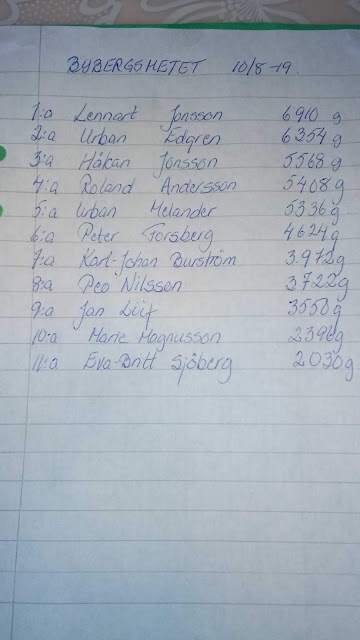 BYBERGSMETET 10/8-19.
1:a Lennart Jonsson 6910 g
2:a Urban Edgren 6354 g
3:a Håkan Jonsson 5568 g
4:a Roland Andersson 5408 g
5:a Urban Melander 5336 g
6:a Peter Forsberg 4624 g
7:a Karl-Johan Burström 3.972 g
8:a Peo Nilsson 3722 g
9:a Jan Lüf 3550 g
10:a Marie Magnusson 2396 g
11:a Eva-Britt Sjöberg 2030 g